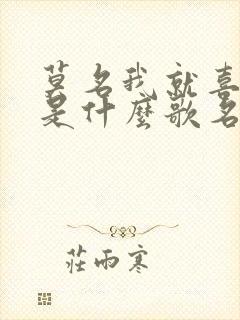 莫名我就喜
是什麼歌名
莊雨寒